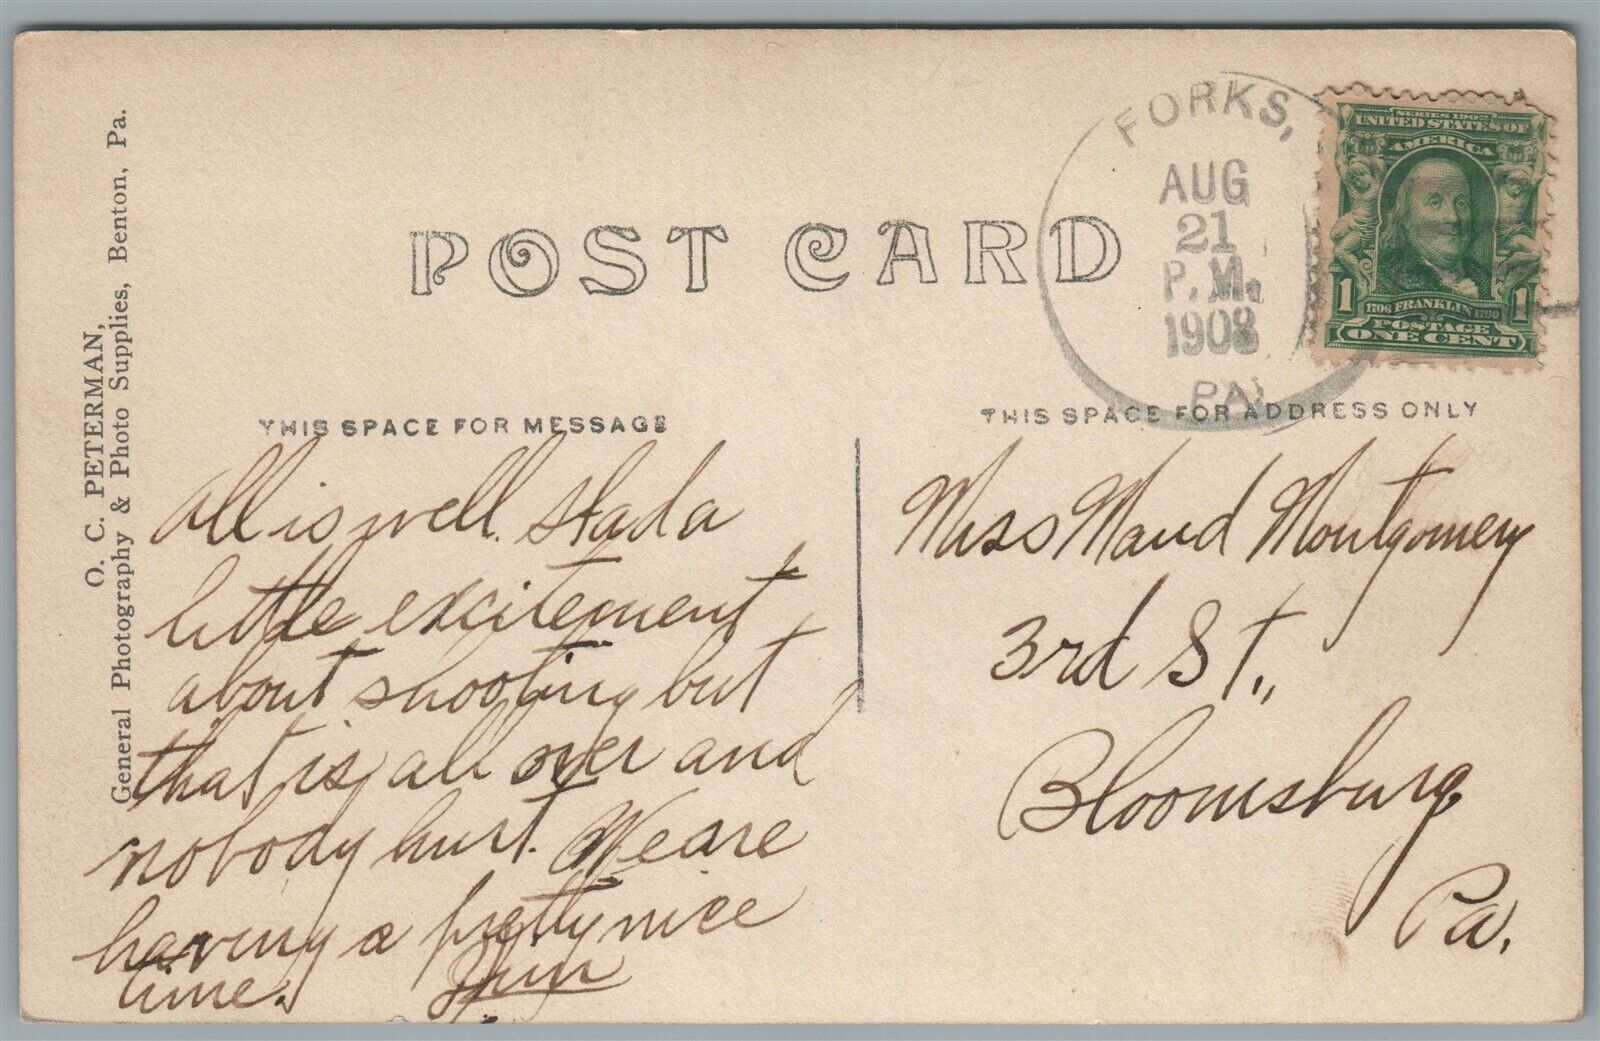 O. C. PETERMAN,
General Photography & Photo Supplies, Benton, Pa.
POST CARD
FORKS,
AUG
21
P. M.
1908
PA.
SERIES 1902
UNITED STATES OF
AMERICA
1 1706 FRANKLIN 1790 1
POSTAGE
ONE CENT
THIS SPACE FOR MESSAGE
THIS SPACE FOR ADDRESS ONLY
All is well. Had a
little excitement
about shooting but
that is all over and
nobody hurt. We are
having a pretty nice
time.
Miss Maud Montgomery
3rd St.,
Bloomsburg
Pa.